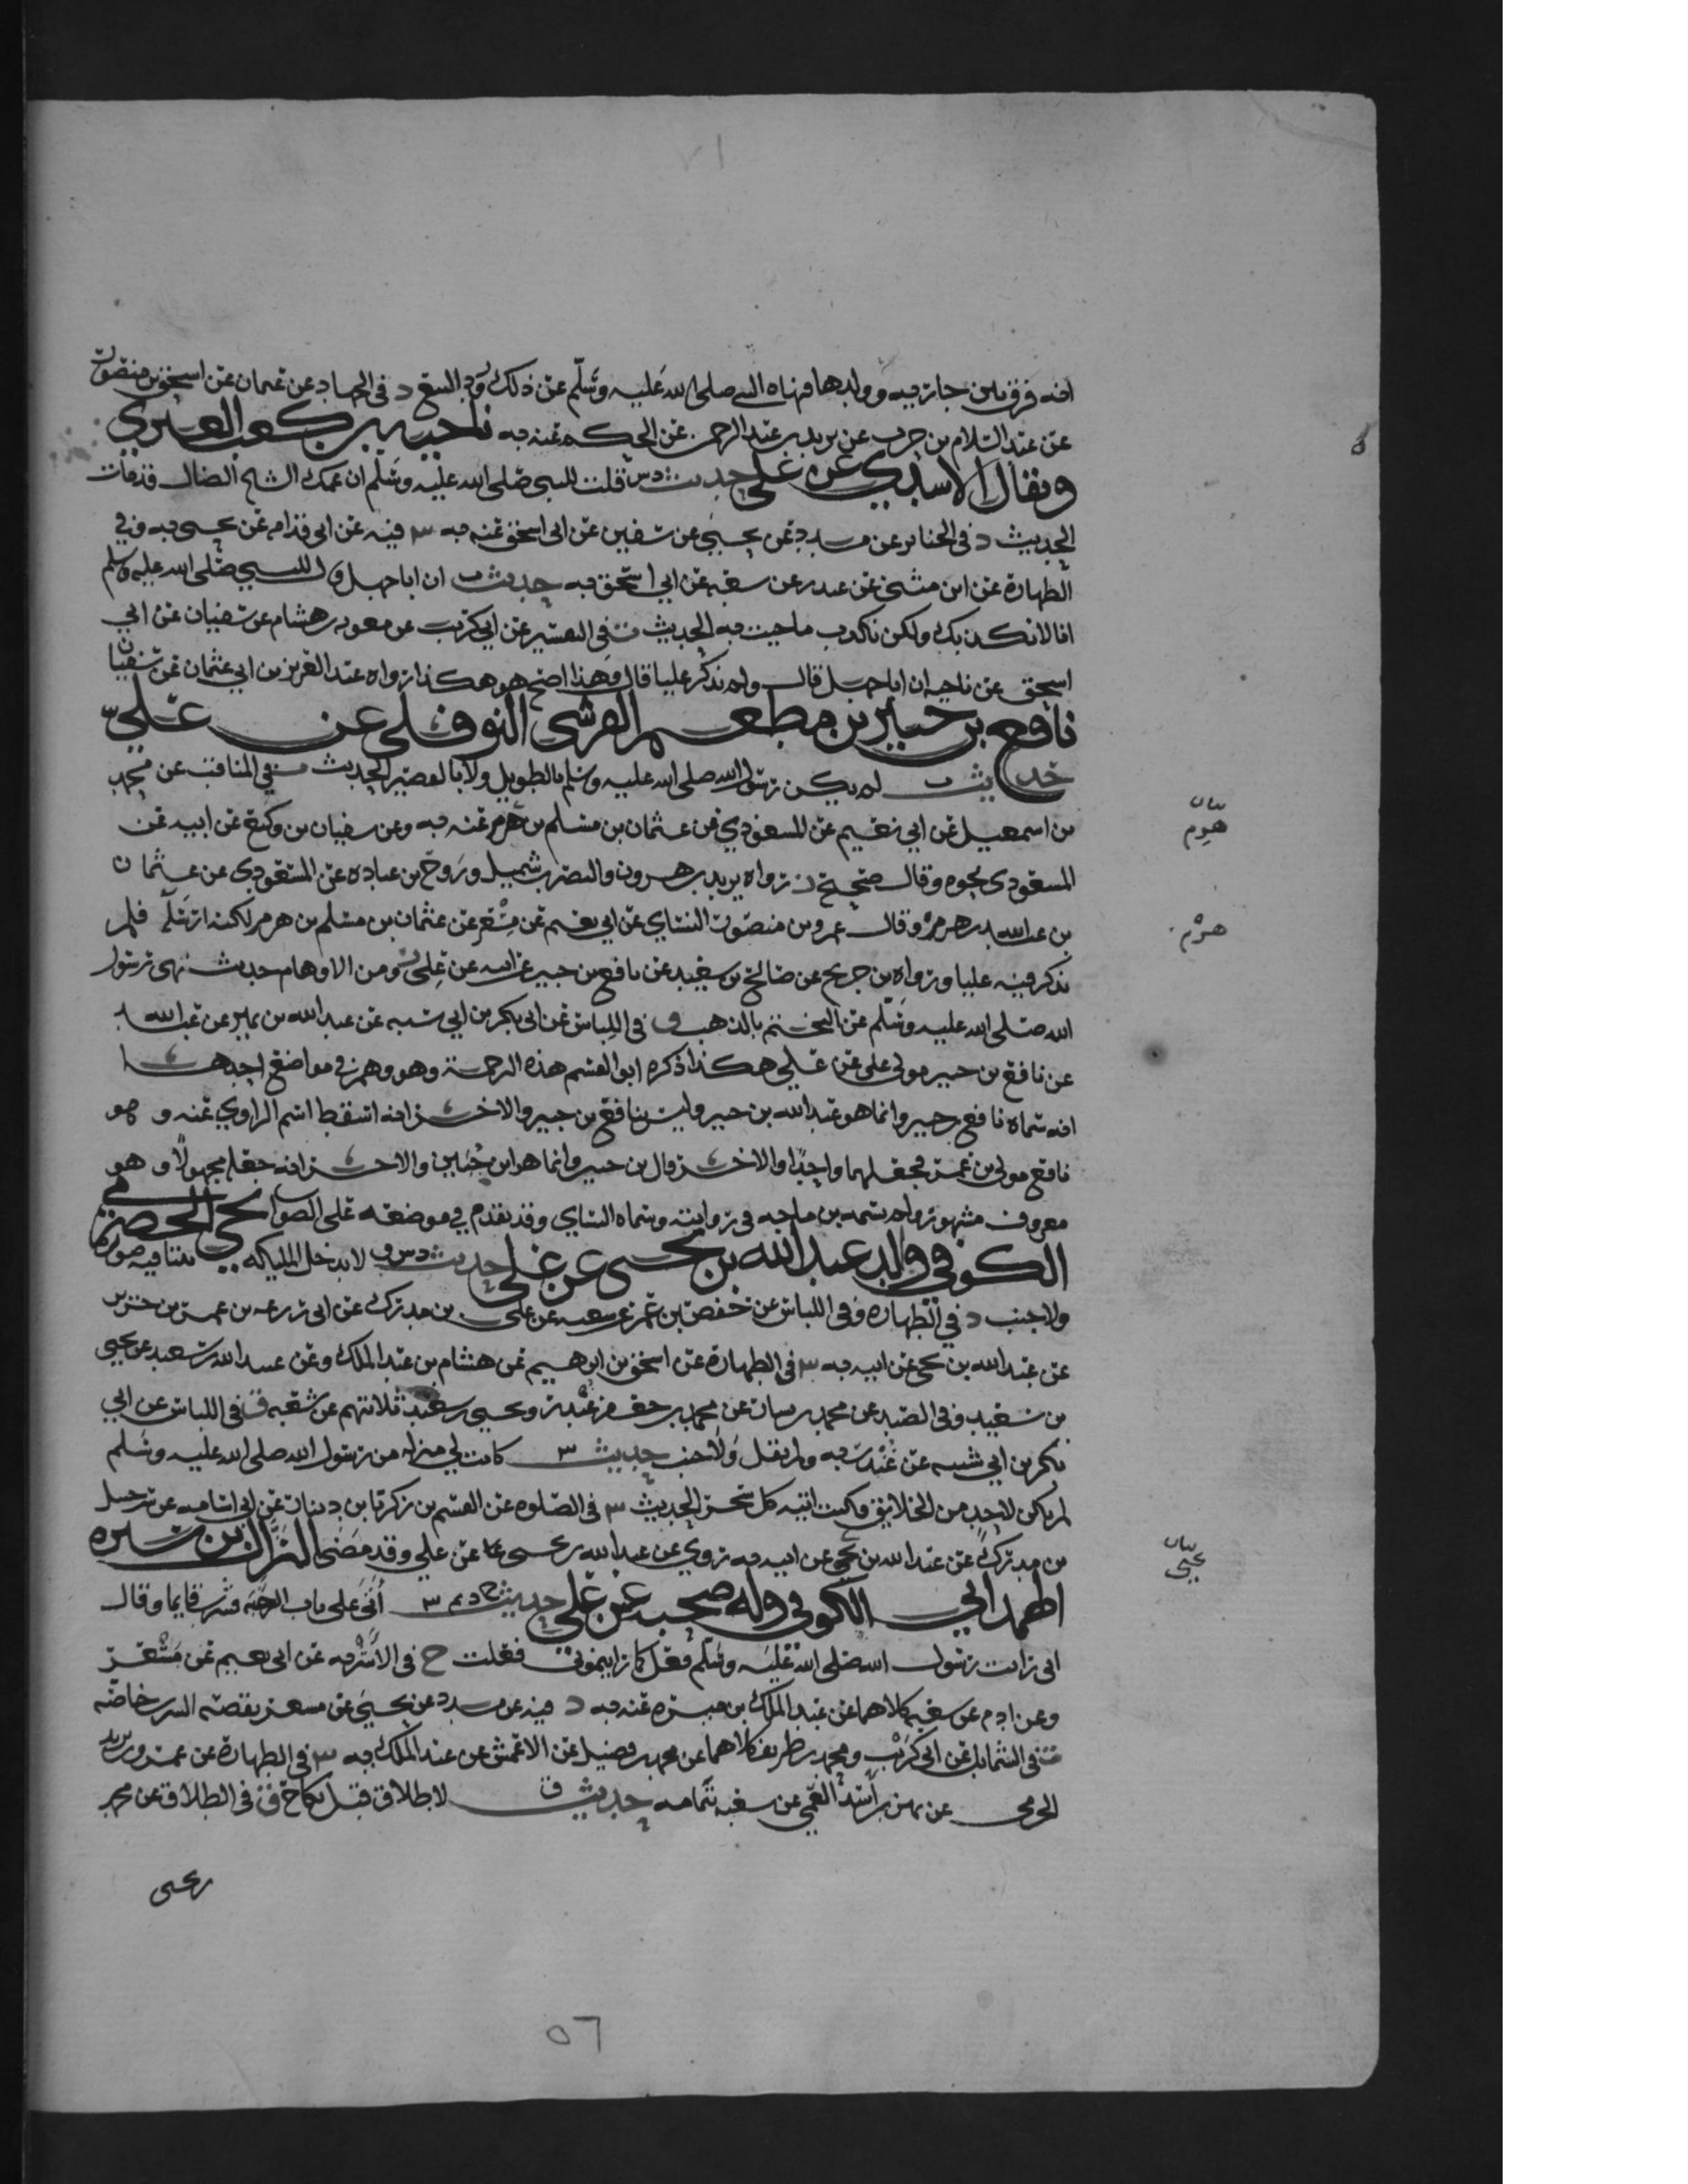 انه فرق بين جارية وولدها فنهاه النبي صلى الله عليه وسلم عن ذلك ورد البيع د في الجهاد عن عثمان عن اسحق بن منصور
عن عبد السلام بن حرب عن يزيد بن عبد الرحمن عن الحكم عنه به ناجيه بن كعب العنزي
ويقال الاسدي عن علي حديث د س قلت للنبي صلى الله عليه وسلم ان عمك الشيخ الضال قد مات
الحديث د في الجنايز عن مسدد عن يحيى عن سفين عن ابي اسحق عنه به س فيه عن ابي قدامه عن يحيى به وفي
الطهارة عن ابن مثنى عن غندر عن شعبه عن ابي اسحق به حديث ت ان ابا جهل قال للنبي صلى الله عليه وسلم
انا لا نكذبك ولكن نكذب ما جيت به الحديث ت في التفسير عن ابي كريب عن معويه بن هشام عن سفيان عن ابي
اسحق عن ناجيه ان ابا جهل قال ولم يذكر عليا قال وهذا اصح هو هكذا رواه عبد العزيز بن ابي عثمان عن سفيان
نافع بن جبير بن مطعم القرشي النوفلي عن علي
حديث ت لم يكن رسول الله صلى الله عليه وسلم بالطويل ولا بالقصير الحديث ت في المناقب عن محمد
بن اسمعيل عن ابي نعيم عن المسعودي عن عثمان بن مسلم بن هرمز عنه به وعن سفيان بن وكيع عن ابيه عن
المسعودي نحوه وقال صحيح ز رواه يزيد بن هرون والنضر بن شميل وروح بن عباده عن المسعودي عن عثمان
بن عبد الله بن هرمز وقال عمرو بن منصور النساي عن ابي نعيم عن مسعر عن عثمان بن مسلم بن هرمز لكنه ارسله فلم
يذكر فيه عليا ورواه بن جريج عن صالح بن سعيد عن نافع بن جبير عن علي ز ومن الاوهام حديث نهى رسول
الله صلى الله عليه وسلم عن التختم بالذهب ق في اللباس عن ابي بكر بن ابي شيبه عن عبد الله بن نمير عن عبيد الله
عن نافع بن جبير مولى علي عن علي هكذا ذكره ابو القسم هذه الترجمة وهو وهم في مواضع احدها
انه سماه نافع بن جبير وانما هو عبد الله بن حنين وليس بنافع بن جبير والاخر انه اسقط اسم الراوي عنه وهو
نافع مولى بن عمر فجعلهما واحدا والاخر قال بن جبير وانما هو ابن حنين والاخر انه جعله مجهولا وهو
معروف مشهور ولم يسمه بن ماجه في روايته وسماه النساي وقد تقدم في موضعه على الصواب نجي الحضرمي
الكوفي والد عبد الله بن نجي عن علي حديث د س ق لا تدخل المليكه بيتا فيه صوره
ولا جنب د في الطهاره وفي اللباس عن حفص بن عمر عن شعبه عن علي بن مدرك عن ابي زرعه بن عمرو بن جرير
عن عبد الله بن نجي عن ابيه به س في الطهارة عن اسحق بن ابرهيم عن هشام بن عبد الملك وعن عبيد الله بن سعيد عن يحيى
بن سعيد وفي الصيد عن محمد بن بشار عن محمد بن جعفر غندر ويحيى بن سعيد ثلاثتهم عن شعبه ق في اللباس عن ابي
بكر بن ابي شيبه عن غندر به ولم يقل ولا جنب حديث س كانت لي منزله من رسول الله صلى الله عليه وسلم
لم يكن لاحد من الخلايق وكنت اتيه كل سحر الحديث س في الصلوه عن القسم بن زكريا بن دينار عن ابي اسامه عن شرحبيل
بن مدرك عن عبد الله بن نجي عن ابيه به روي عن عبد الله بن نجي عن علي وقد مضى النزال بن سبره
الهمداني الكوفي وله صحبه عن علي حديث خ د تم س أتى على باب الرحبه فشرب قايما وقال
اني رايت رسول الله صلى الله عليه وسلم فعل كما رايتموني فعلت خ في الاشربه عن ابي نعيم عن مسعر
وعن ادم عن شعبه كلاهما عن عبد الملك بن ميسره عنه به د فيه عن مسدد عن يحيى عن مسعر بقصة الشرب خاصة
تم في الشمايل عن ابي كريب ومحمد بن طريف كلاهما عن محمد بن فضيل عن الاعمش عن عبد الملك به س في الطهارة عن عمرو بن يزيد
الجرمي عن بهز بن اسد العمي عن شعبه بتمامه حديث ق لا طلاق قبل نكاح ق في الطلاق عن محمد
بن يحيى
بيان
هرمز
هرمز
بيان
نجي
٥٦